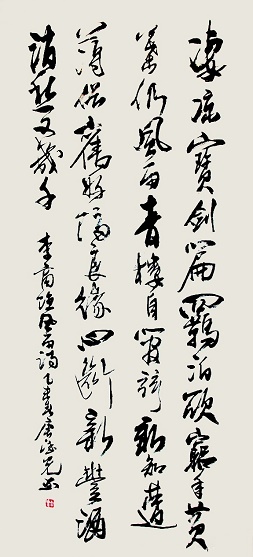 凄凉寶劍篇羈泊欲窮年黄
葉仍風雨青樓自管弦新知遭
薄俗舊好隔良緣心斷新豐酒
消愁又幾千 李商隱風雨詩